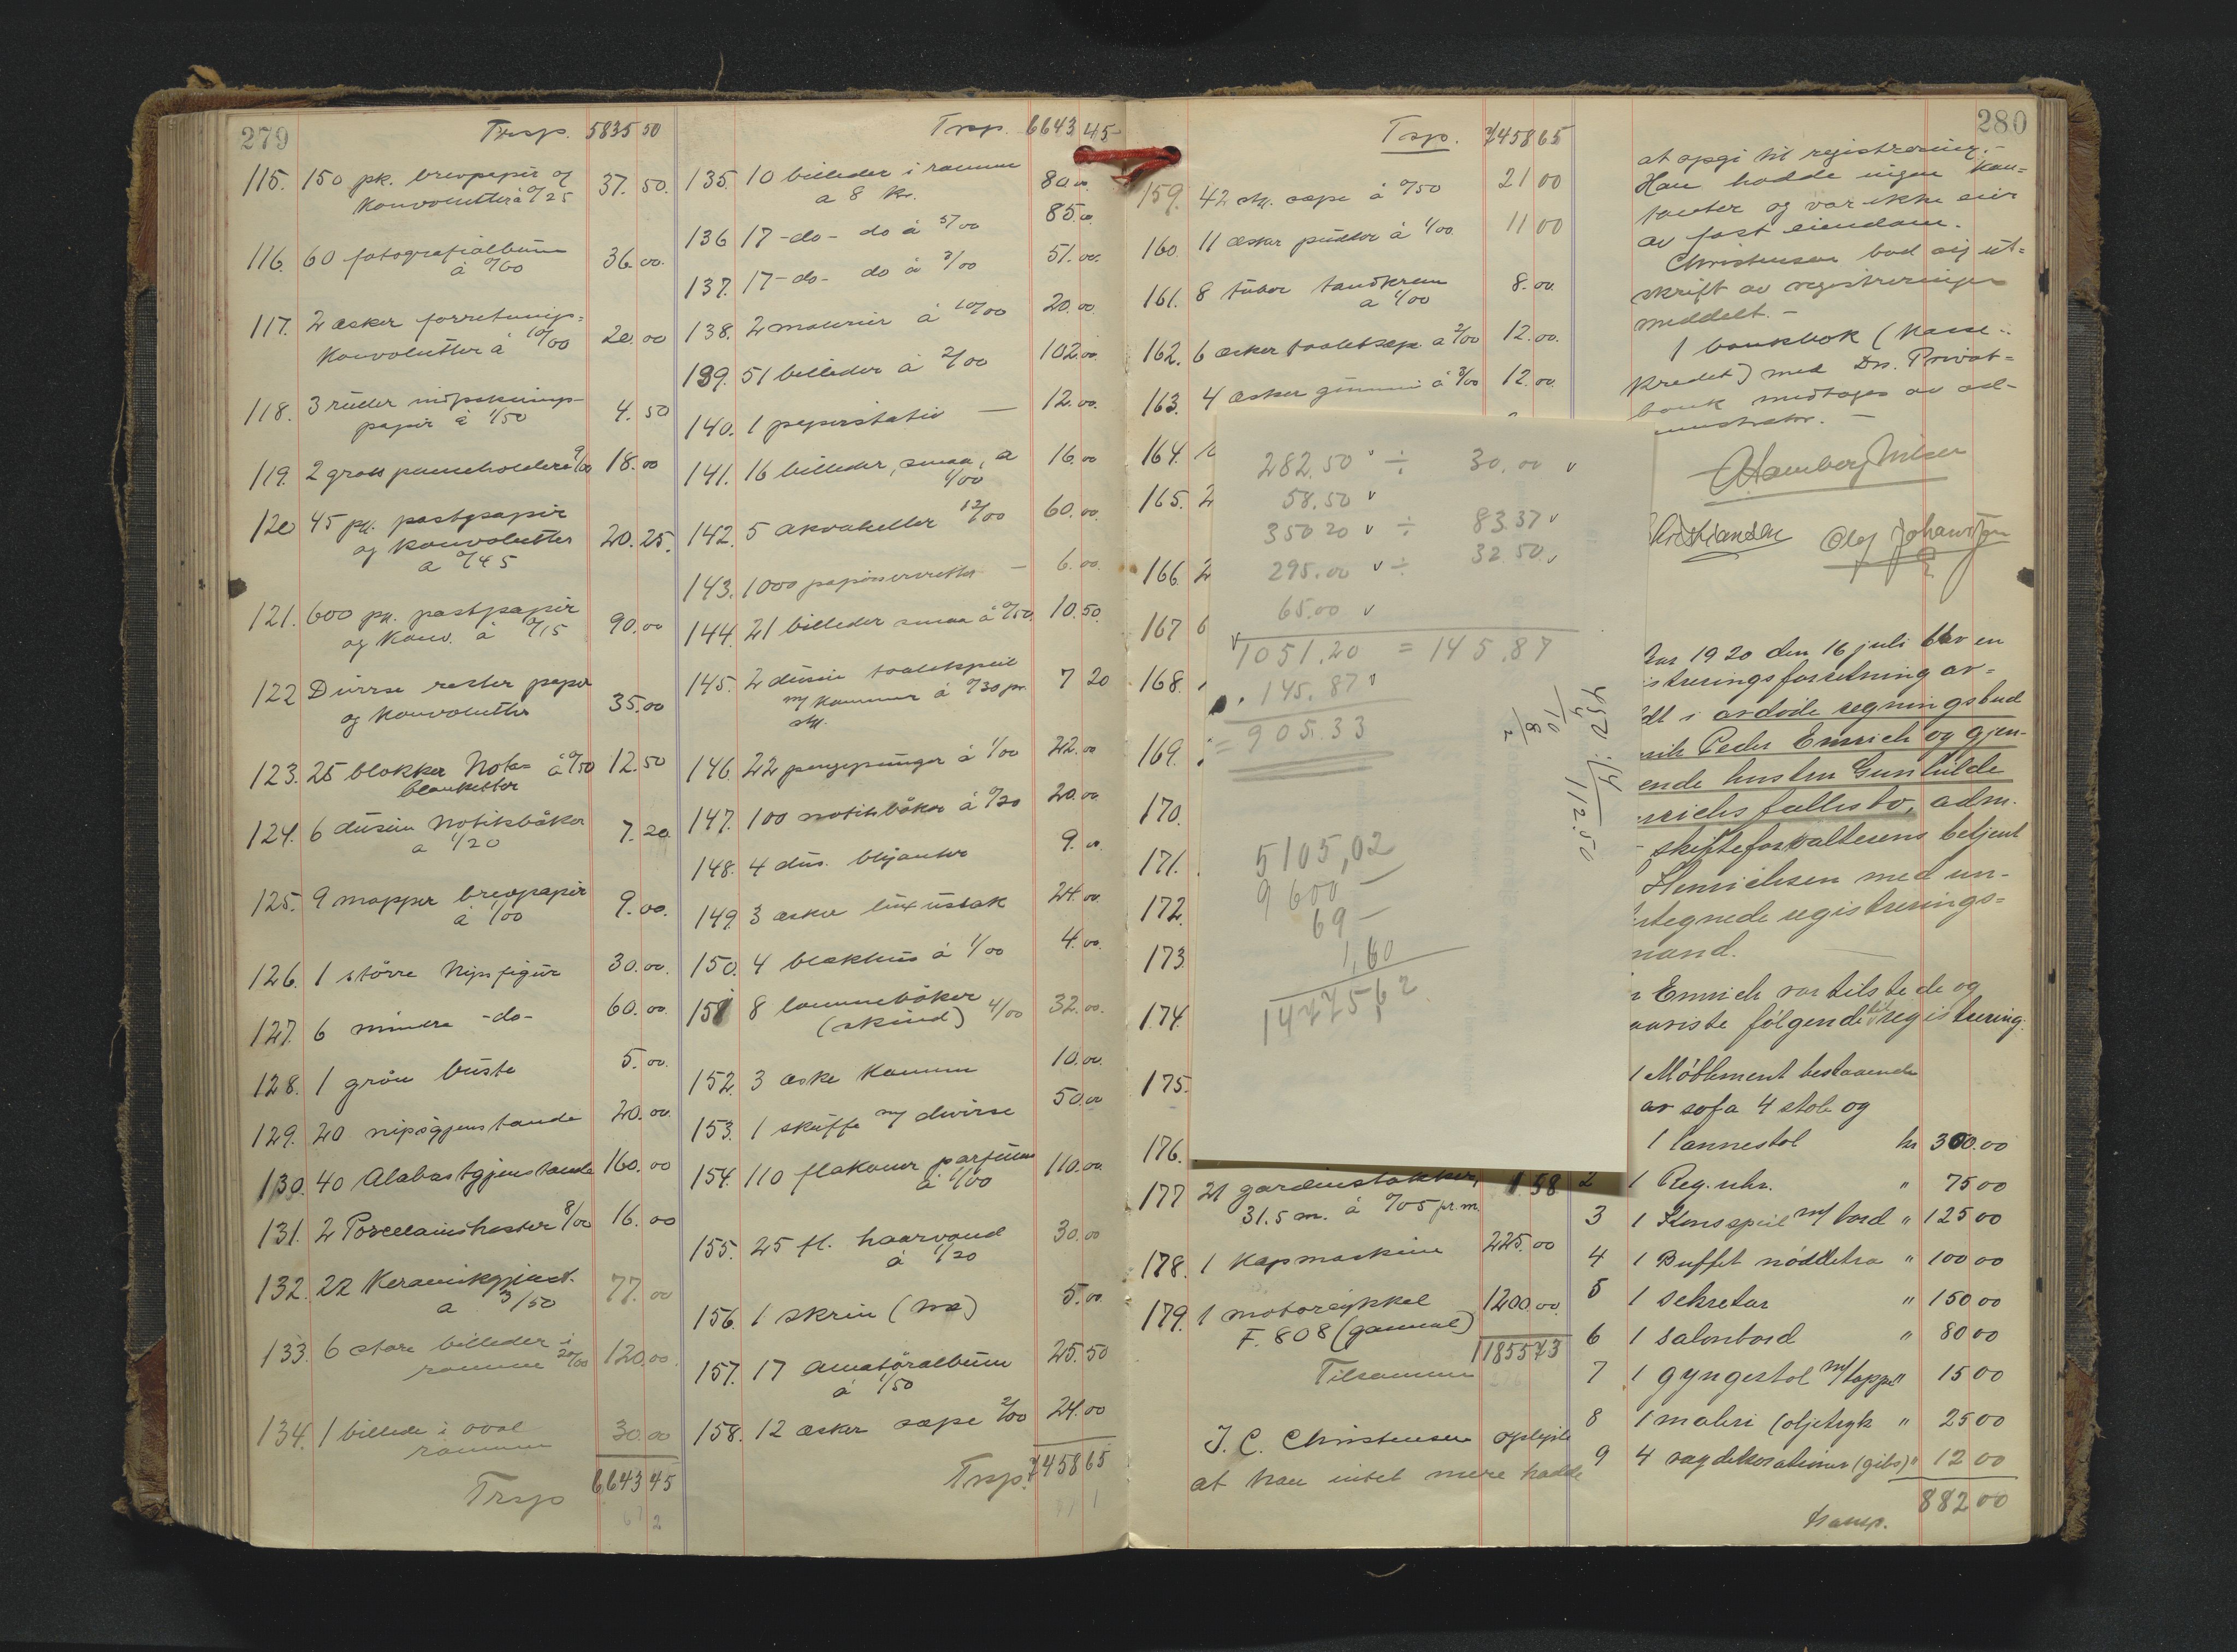 279
Trsp. 5835 50
115. 150 pk. brevpapir og
konvolutter à 0/25 37. 50.
116. 60 fotografialbum
à 0/60 36.00.
117. 2 æsker forretnings-
konvolutter à 10/00 20.00
118. 3 ruller indpaknings-
papir à 1/50 4.50
119. 2 gross penneholdere 9/00 18.00
120 45 pk. postpapir
og konvolutter
a 0/45 20.25.
121. 600 pk. postpapir
og konv. à 0/15 90.00
122 Diverse rester papir
og konvolutter 35.00
123. 25 blokker Nota- à 0/50 12.50
blanketter
124. 6 dusin Notisbøker
a 1/20 7.20
125. 9 mapper brevpapir
à 1/00 9.00.
126. 1 større Nipsfigur 30.00.
127. 6 mindre -do- 60.00.
128. 1 grøn buste 5.00.
129. 20 nipsgjenstande 20.00.
130. 40 Alabastgjenstande 160.00
131. 2 Porcellainshester 8/00 16.00
132. 22 Keramikgjenst.
a 3/50 77.00
133. 6 store billeder i
ramme 20/00 120.00.
134. 1 billede i oval
ramme 30.00
Trsp 6643 45
Trsp. 6643 45
135. 10 billeder i ramme
a 8 kr. 80.00.
136 17 -do- do à 5/00 85.00
137. 17 -do- do à 3/00 51.00.
138. 2 malerier à 10/00 20.00.
139. 51 billeder à 2/00 102.00.
140. 1 papirstativ — 12.00.
141. 16 billeder, smaa, a
1/00 16.00
142. 5 akvareller 12/00 60.00.
143. 1000 papirservietter — 6.00.
144. 21 billeder smaa à 0/50. 10.50.
145. 2 dusin toaletspeil
m/ kammer à 0/30 pr.
stk. 7 20
146. 22 pengepunger à 1/00 22.00
147. 100 notisbøker à 0/20 20.00
148. 4 dus. blyanter 9.00.
149. 3 æsker luxuslak 24.00.
150. 4 blekhus à 1/00 4.00.
151 8 lommebøker
(skind) 4/00 32.00.
152. 3 æske kamme 10.00.
153. 1 skuffe m/ diverse 50.00
154. 110 flakoner parfume
à 1/00 110.00.
155. 25 fl. haarvand
à 1/20 30.00
156. 1 skrin 5.00.
157. 17 amatøralbum
à 1/50 25.50
158. 12 æsker sæpe 2/00 24.00
Trsp. 7458 65
280
Trsp. 7458 65
159. 42 stk. sæpe à 0/50 21 00
160. 11 æsker pudder à 1/00. 11 00
161. 8 tuber tandkrem
a 1/00 8.00.
162. 6 æsker toaletsæpe a 2/00 12.00.
163. 4 æsker gummi à 3/00 12.00.
164.
165. 2
166. 2
167 6
168.
169.
170.
171.
172.
173
174.
175.
176.
177 21 gardinstokker,
31.5 m. à 0/05 pr. m. 1.58
178. 1 Kapmaskine 225.00
179. 1 motorcykkel
F. 808 (gammel) 1200.00.
Tilsammen 11855 73
J. C. Christensen oplyste
at han intet mere hadde
282.50 ÷ 30.00 v
58.50 v
350 20 v ÷ 83.37 v
295.00 v ÷ 32.50 v
65.00 v
1051.20 = 145.87
145.87 v
= 905.33
450 : 4 112.50
5105,02
9 600 —
69 —
1,60
14775,62
at opgi til registrering.
Han hadde ingen kon-
tanter og var ikke eier
av fast eiendom.
Christensen bad sig ut-
skrift av registreringen
meddelt. —
1 bankbok (kasse-
kredit) med Drs. Privat-
bank medtages av ad-
ministrator. —
Olaf Johansen
Aar 1920 den 16 juli blev en
istreringsforretning av-
dt i avdøde regningsbud
rik Peder Emrich og gjen-
ende hustru Gunhilde
mrichs fællesbo, adm.
skifteforvalterens betjent
Henrichsen med un-
rtegnede registrerings-
mand.
Emrich var tilstede og
aaviste følgende til registrering:
1 Møblement bestaaende
av sofa 4 stole og
1 lænestol kr 300.00
2 1 Reg. uhr. " 75 00
3 1 Konsspeil m/ bord " 125 00
4 1 Buffet nøddetræ " 100 00
5 1 sekretær " 150 00
6 1 salonbord " 80 00
7 1 gyngestol m/teppe " 15 00
8 1 maleri (oljetryk " 25 00
9 4 vægdekorationer (gibs) " 12 00
transp. 882 00